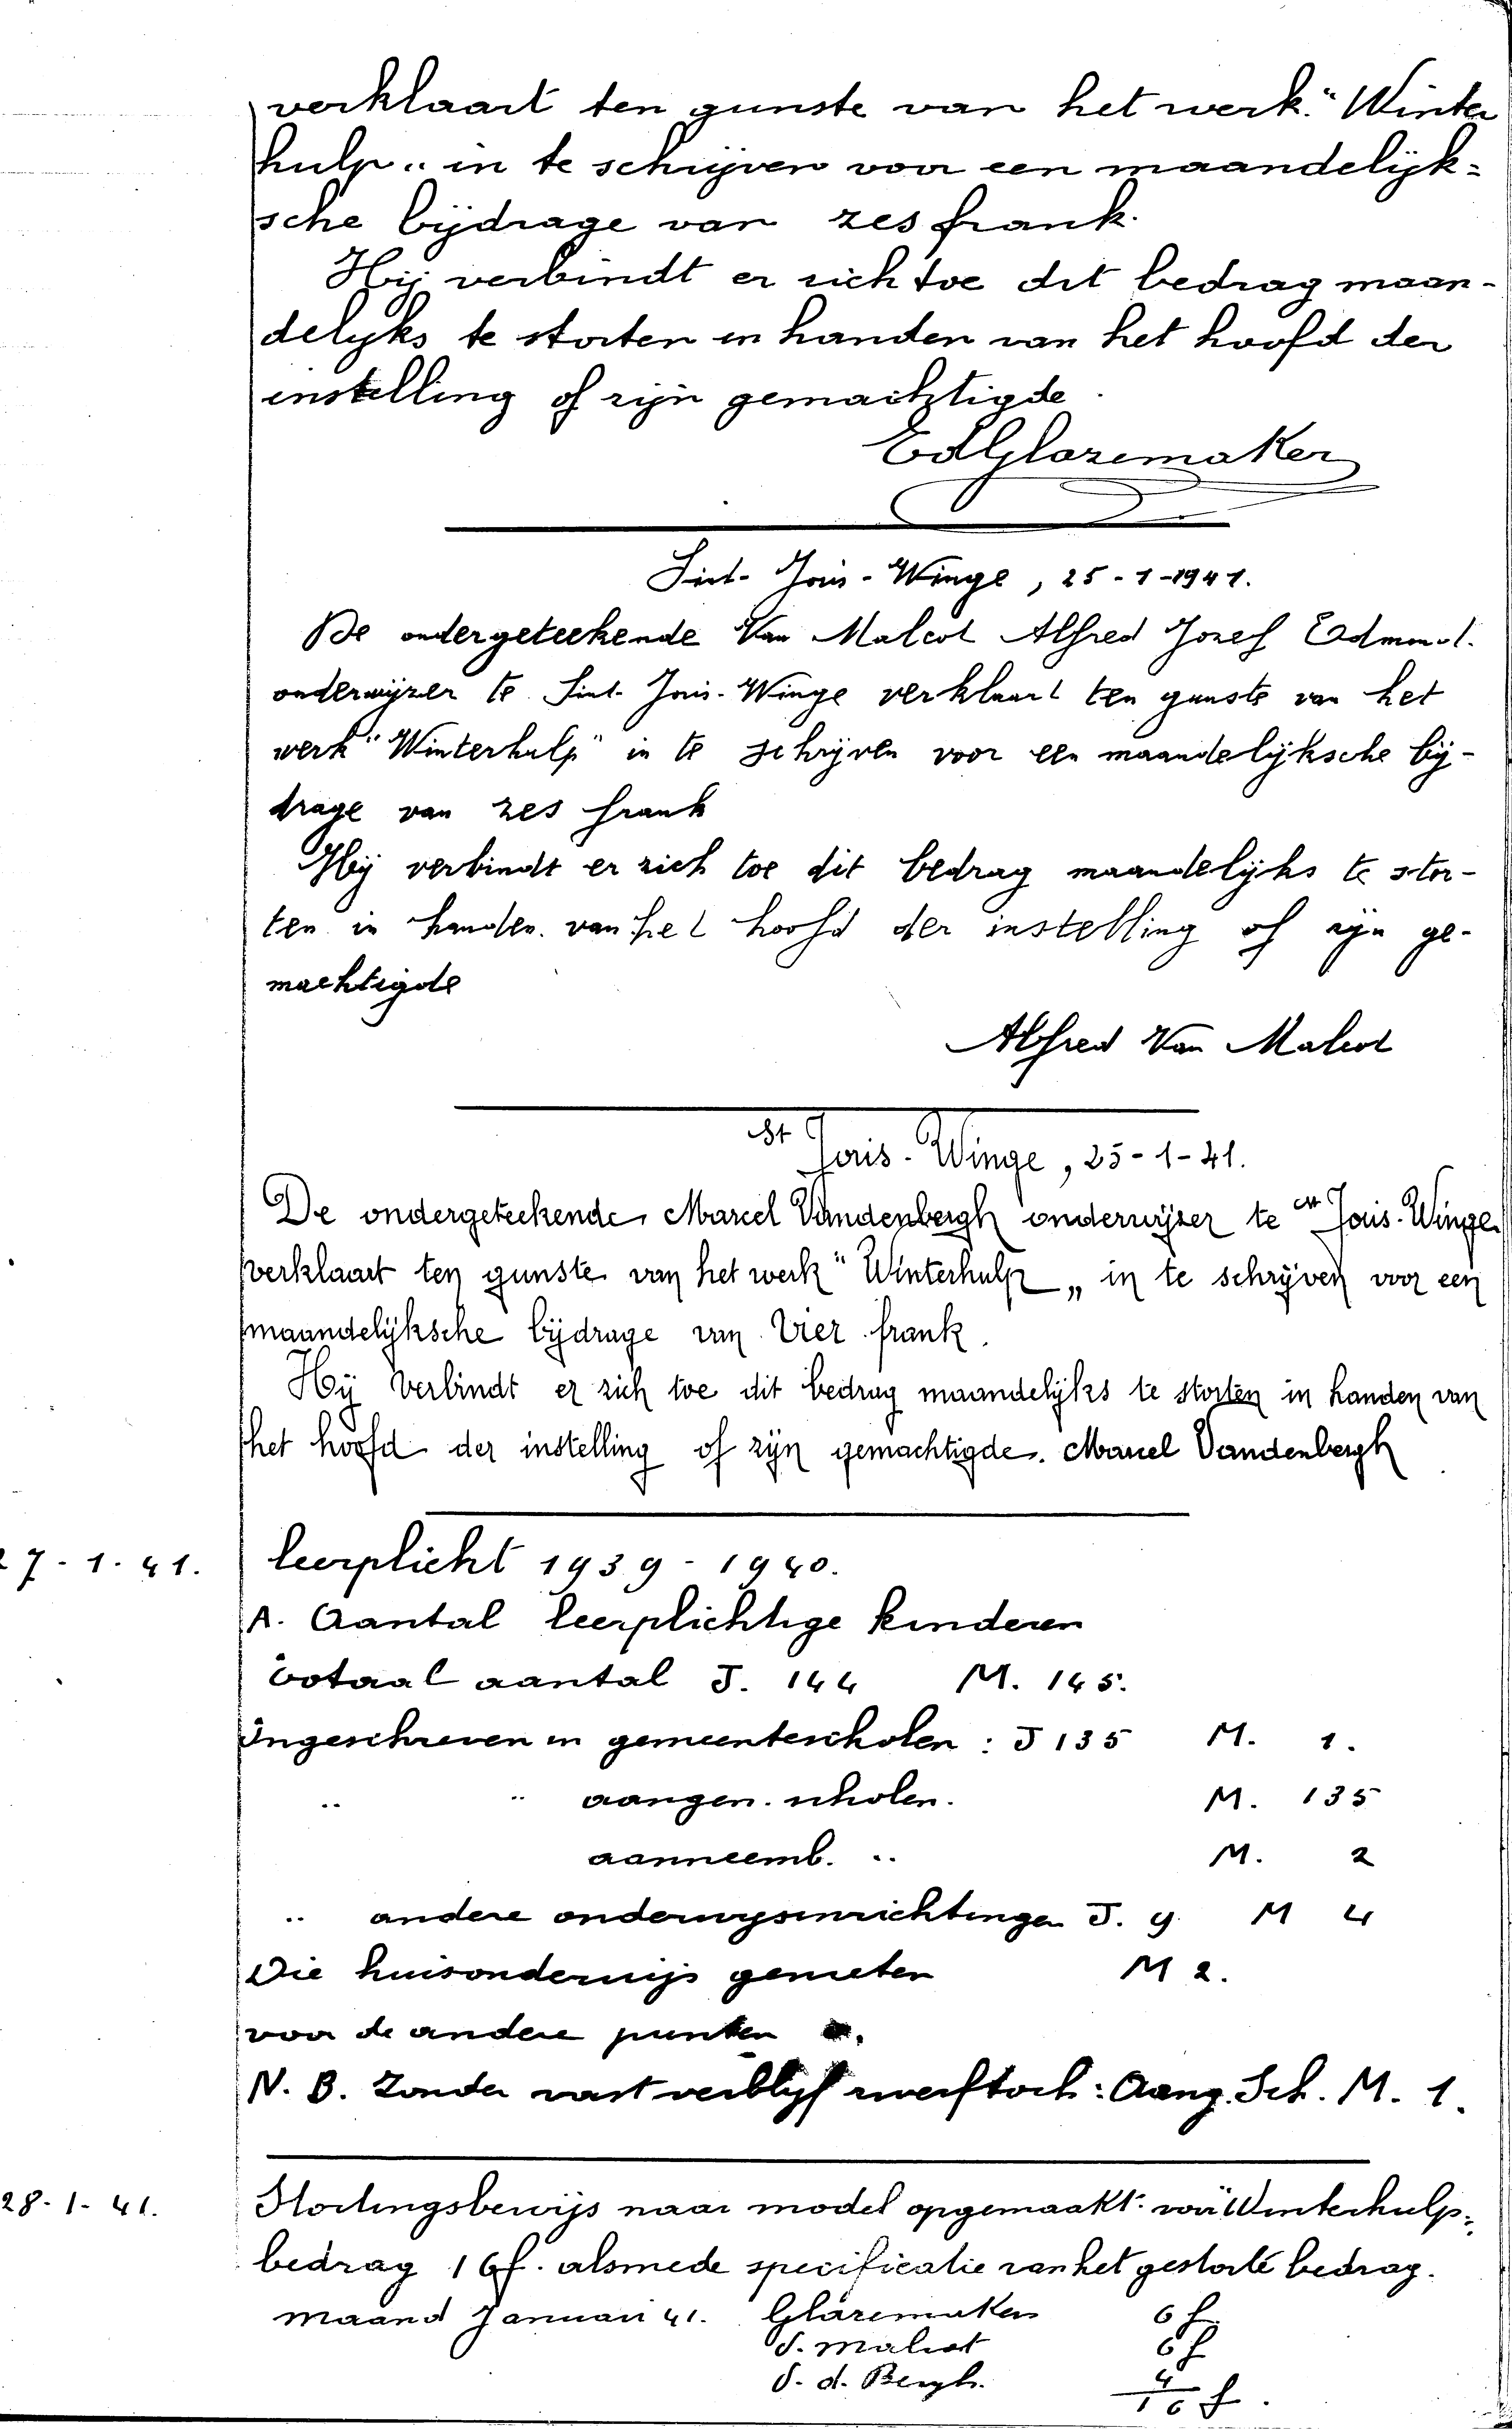 verklaart ten gunste van het werk "Winter
hulp" in te schrijven voor een maandelijk=
sche bijdrage van zes frank.
Hij verbindt er zich toe dit bedrag maan-
delijks te storten in handen van het hoofd der
instelling of zijn gemachtigde.
Ed Glazemaker
Sint-Joris-Winge, 25-1-1941.
De ondergeteekende Van Malcot Alfred Jozef Edmond.
onderwijzer te Sint-Joris-Winge verklaart ten gunste van het
werk "Winterhulp" in te schrijven voor een maandelijksche bij-
drage van zes frank
Hij verbindt er zich toe dit bedrag maandelijks te stor-
ten in handen van het hoofd der instelling of zijn ge-
machtigde
Alfred Van Malcot
St Joris-Winge, 25-1-41.
De ondergeteekende, Marcel Vandenbergh onderwijzer te St Joris-Winge
verklaart ten gunste van het werk "Winterhulp„ in te schrijven voor een
maandelijksche bijdrage van vier frank.
Hij verbindt er zich toe dit bedrag maandelijks te storten in handen van
het hoofd der instelling of zijn gemachtigde. Marcel Vandenbergh
27-1-41. leerplicht 1939-1940.
A. Aantal leerplichtige kinderen
totaal aantal J. 144 M. 145.
Ingeschreven in gemeentescholen: J 135 M. 1.
" " aangen. scholen. M. 135
aanneemb. " M. 2
" andere onderwijsinrichtingen J. 9 M 4
Die huisonderwijs genieten M 2.
voor de andere punten
N.B. Zonder vast verblijf zwerftoch: Aang. Sch. M. 1.
28-1-41. Stortingsbewijs naar model opgemaakt: voor Winterhulp=
bedrag 16f. alsmede specificatie van het gestorte bedrag.
maand Januari 41. Glazemaker 6 f
V. Malcot 6 f
V. d. Bergh. 4
16 f.